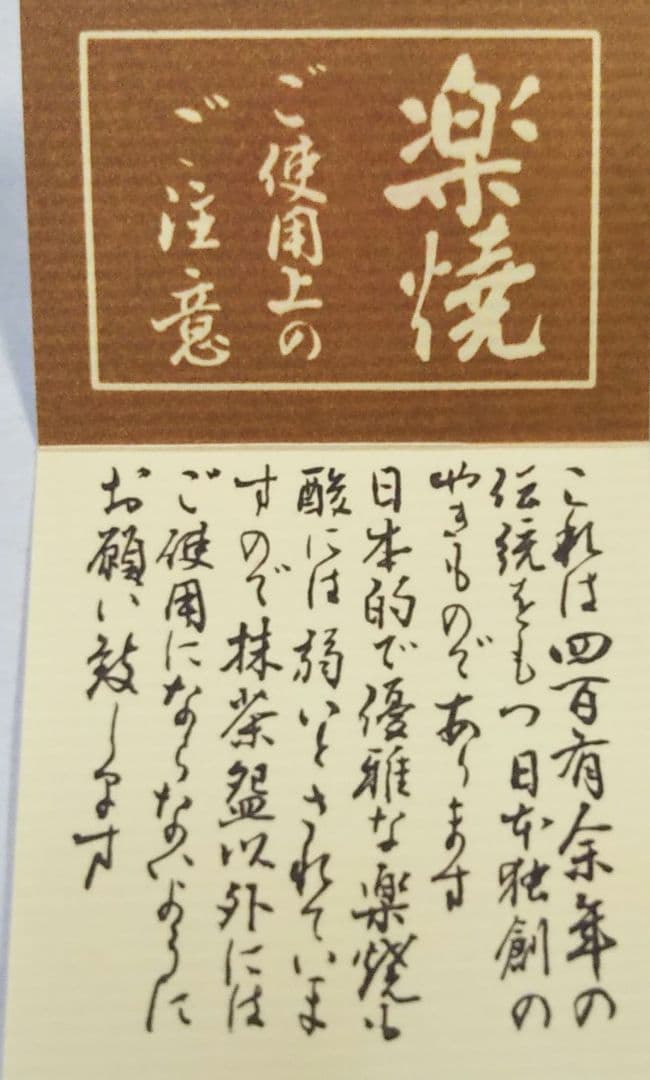 楽焼
ご使用上の
ご注意
これは四百有余年の
伝統をもつ日本独創の
やきものであります
日本的で優雅な楽焼も
酸には弱いとされていま
すので抹茶盌以外には
ご使用にならないように
お願い致します